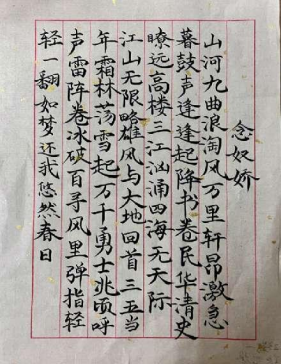 念奴娇
山河九曲浪淘风万里轩昂激急
暮鼓声逢逢起降书卷民华清史
瞭远高楼三江汹涌四海无天际
江山无限略雄风与大地回首三五当
年霜林荡雪起万千勇士兆顷呼
声雷阵卷冰破百矛风里弹指轻
轻一翻如梦还我悠然春日